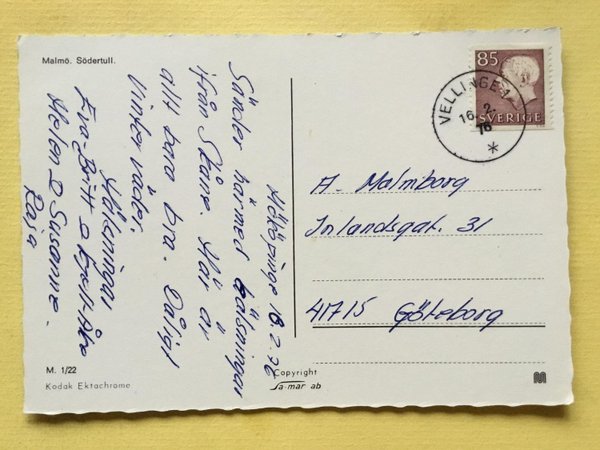 Malmö. Södertull.
Hököpinge 18.2.76
Sänder härmed hälsningar
ifrån Skåne. Här är
allt bara bra. Dåligt
Vinter väder.
Hälsningar
Eva-Britt o Kjell-Åke
Helen o Susanne.
Raja
M. 1/22
Kodak Ektachrome
Copyright
Sa-mar ab
85
SVERIGE
VELLINGE 1
16. 2.
76
*
A. Malmborg
Inlandsgat. 31
41715 Göteborg
M